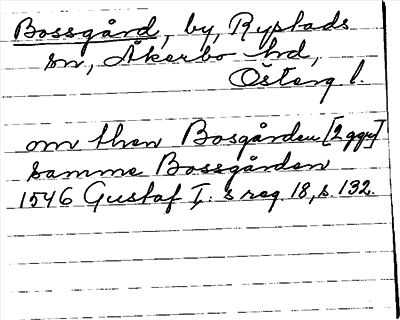 Bossgård, by, Rystads
sn, Åkerbo hd,
Österg l.
om then Bosgården [2 ggr]
samme Bossgården
1546 Gustaf I: s reg. 18, s. 132.